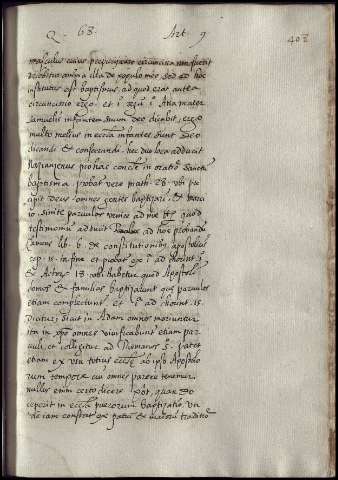 Q. 68. Art 9 402
masculus cuius prepucij caro circuncisa non fuerit
delebitur anima illa de populo meo sed ad hoc
institutus est baptismus ad quod erat antea
circuncisio ergo. et 1 regũ 1 Anna mater
Samuelis infantem suum Deo dicabit ergo
multo melius in ecclia infantes sunt Deo
dicandi et consecrandi. hec duo loca adducit
Nazianzenus pro hac concle in oratio sancta
baptisma probat vere math. 28. ubi
deus omnes gentes baptizari et
10. sinite parvulos venire ad me quod
testimonium aducit ad hoc probandũ
Clemens lib. 6. de constitutionibus apostolicis
cap. 15. in fine et probat 1 ad chorint 1
et Actor 18. ubi habetur quod Apostoli
domos et familias baptizarunt que parvulos
etiam complectunt. et 1 ad chorint. 15.
Dicitur, sicut in Adam omnes moriuntur
ita in xpo omnes vivificabunt etiam par
vuli, et colligitur ad Romanos 5. patet
etiam ex usu totius eccle ab ipso Apostolo
rum tempore cui omnes parere tenemur
nullus enim certo dicere pot, quando
ceperit in eccla puerorum baptizatio un
de iam constat ex patrũ et maiorũ traditio